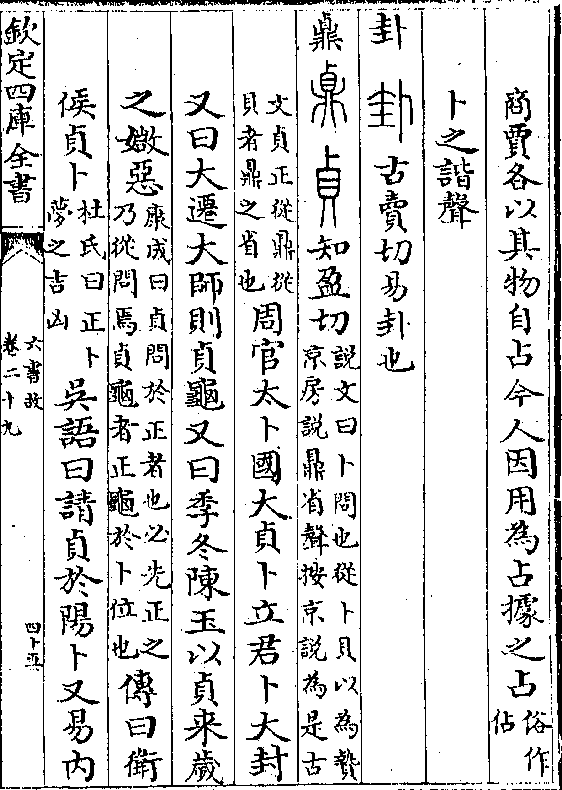 商賈各以其物自占今人因用為占據之占俗作佔
卜之諧聲
卦卦古賣切易卦也
鼎鼎貞知盈切說文曰卜問也從卜貝以為贄
京房說鼎省聲按京說為是古
文貞正從鼎從
貝者鼎之省也周官太卜國大貞卜立君卜大封
又曰大遷大師則貞龜又曰季冬陳玉以貞来歲
之媺惡康成曰貞問於正者也必先正之
乃從問焉貞龜者正龜於卜位也傳曰衛
侯貞卜杜氏曰正卜
夢之吉凶吳語曰請貞於陽卜又易內
欽定四庫全書
六書故
卷二十九
四十五